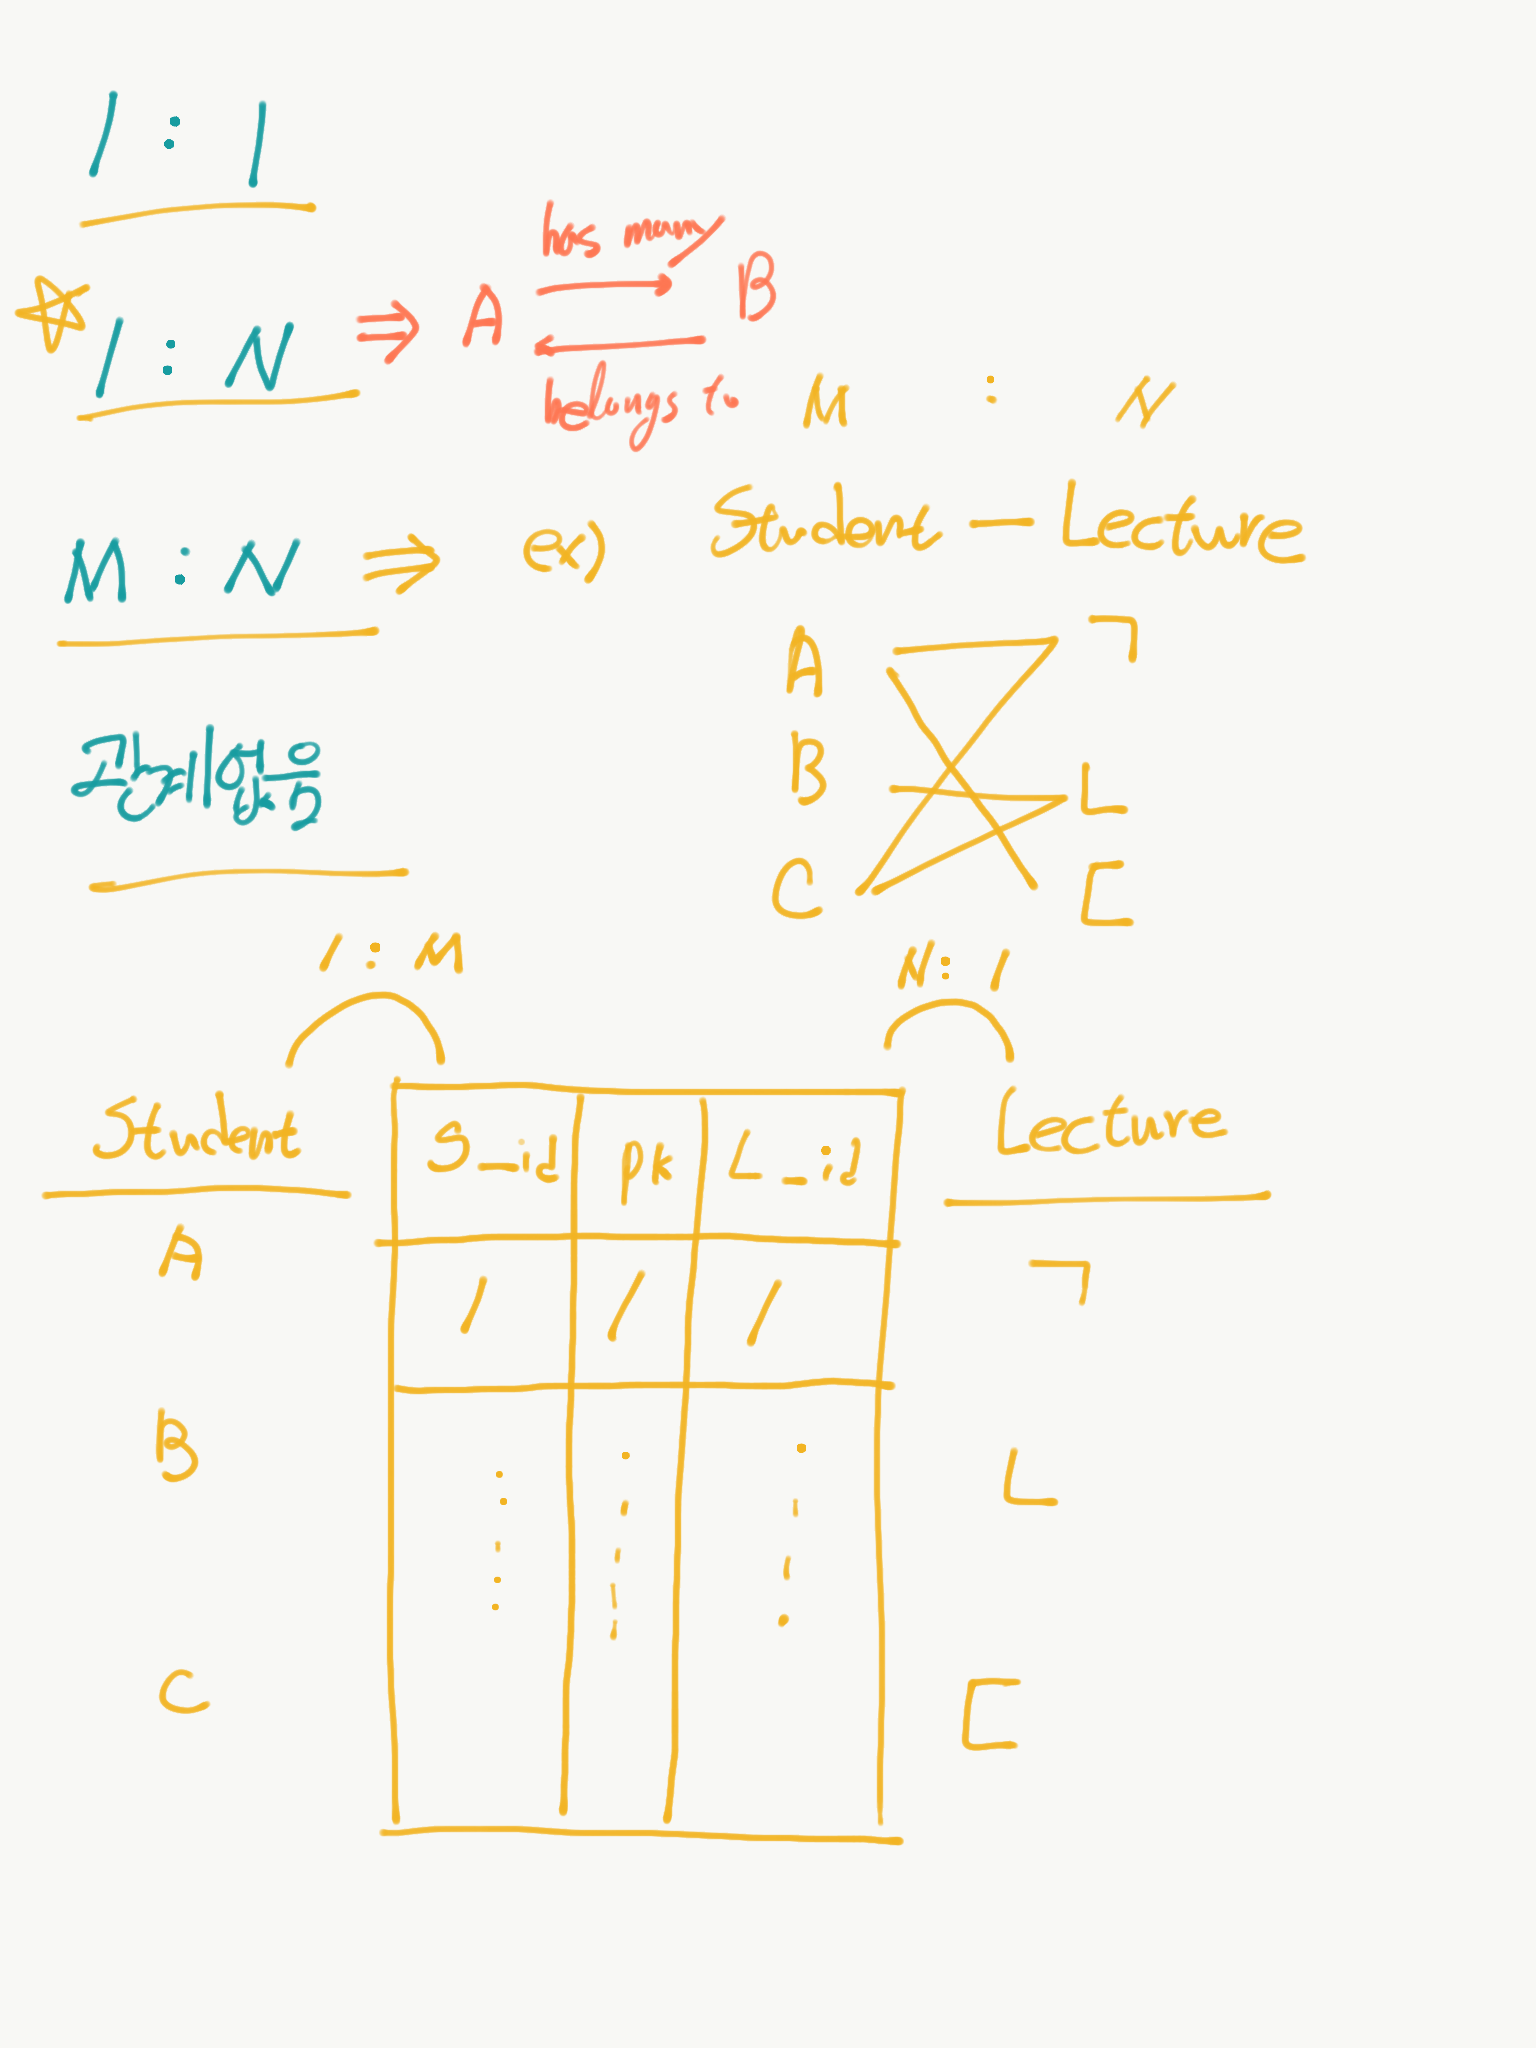 1 : 1
☆ 1 : N ⇒ A has many → B
← belongs to
M : N
M : N ⇒ ex) Student - Lecture
A ㄱ
B ㄴ
C ㄷ
관계없음
1 : M N : 1
Student S_id pk L_id Lecture
A 1 1 1 ㄱ
B ㄴ
C ㄷ